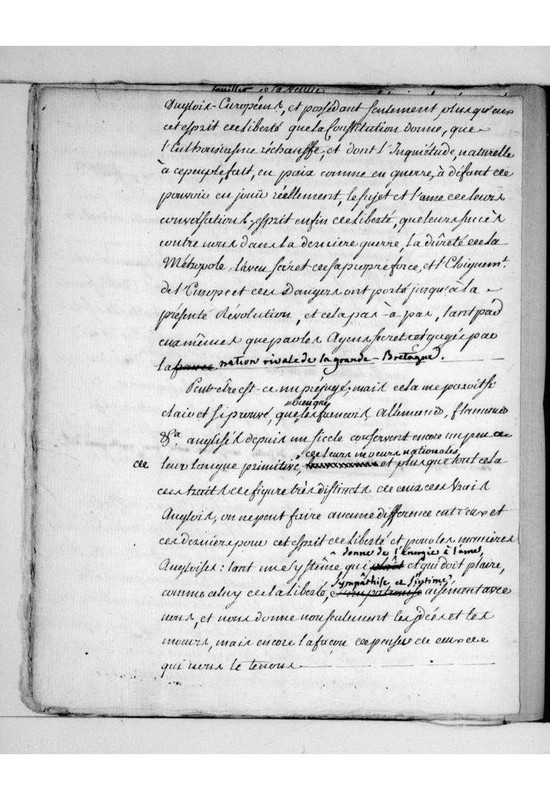 Anglois-Européens, et possédant seulement plus qu'eux
cet esprit de liberté que la Constitution donne, que
l'Enthousiasme réchauffe, et dont l'Inquiétude, naturelle
à ce peuple, fait, en paix comme en guerre, à défaut de
pouvoir en jouir réellement, le sujet et l'ame de leurs
conversations; esprit enfin de liberté, que leurs succès
contre nous dans la dernière guerre, la dûreté de la
Métropole, l'aveu secret de sa propre force, et l'Eloignemt.
de l'Europe et de ses Dangers ont porté jusqu'à la
présente Révolution, et cela pas-à-pas, tant par
eux mêmes que par les Agens secrets et gagés par
la france nation rivale de la grande-Bretagne.
Peut-être est-ce un préjugé; mais cela me paroit si
clair et si prouvé, que, quoique les françois, allemands, flamands
&a. anglisés depuis un siecle conservent encore un peu de
de leur langue primitive, de leurs moeurs nationales, et plus que tout cela
des traits de figure très distincts de ceux des vrais
Anglois, on ne peut faire aucune différence entr'eux et
ces derniers pour cet esprit de liberté et pour les manières
Angloises: tant un systême qui plait donne de l'Energie à l'ame, et qui doit plaire,
comme celuy de la liberté, sympathise et s'intime aisément avec
nous, et nous donne non seulement les idées et les
moeurs, mais encore la façon de penser de ceux de
qui nous le tenons